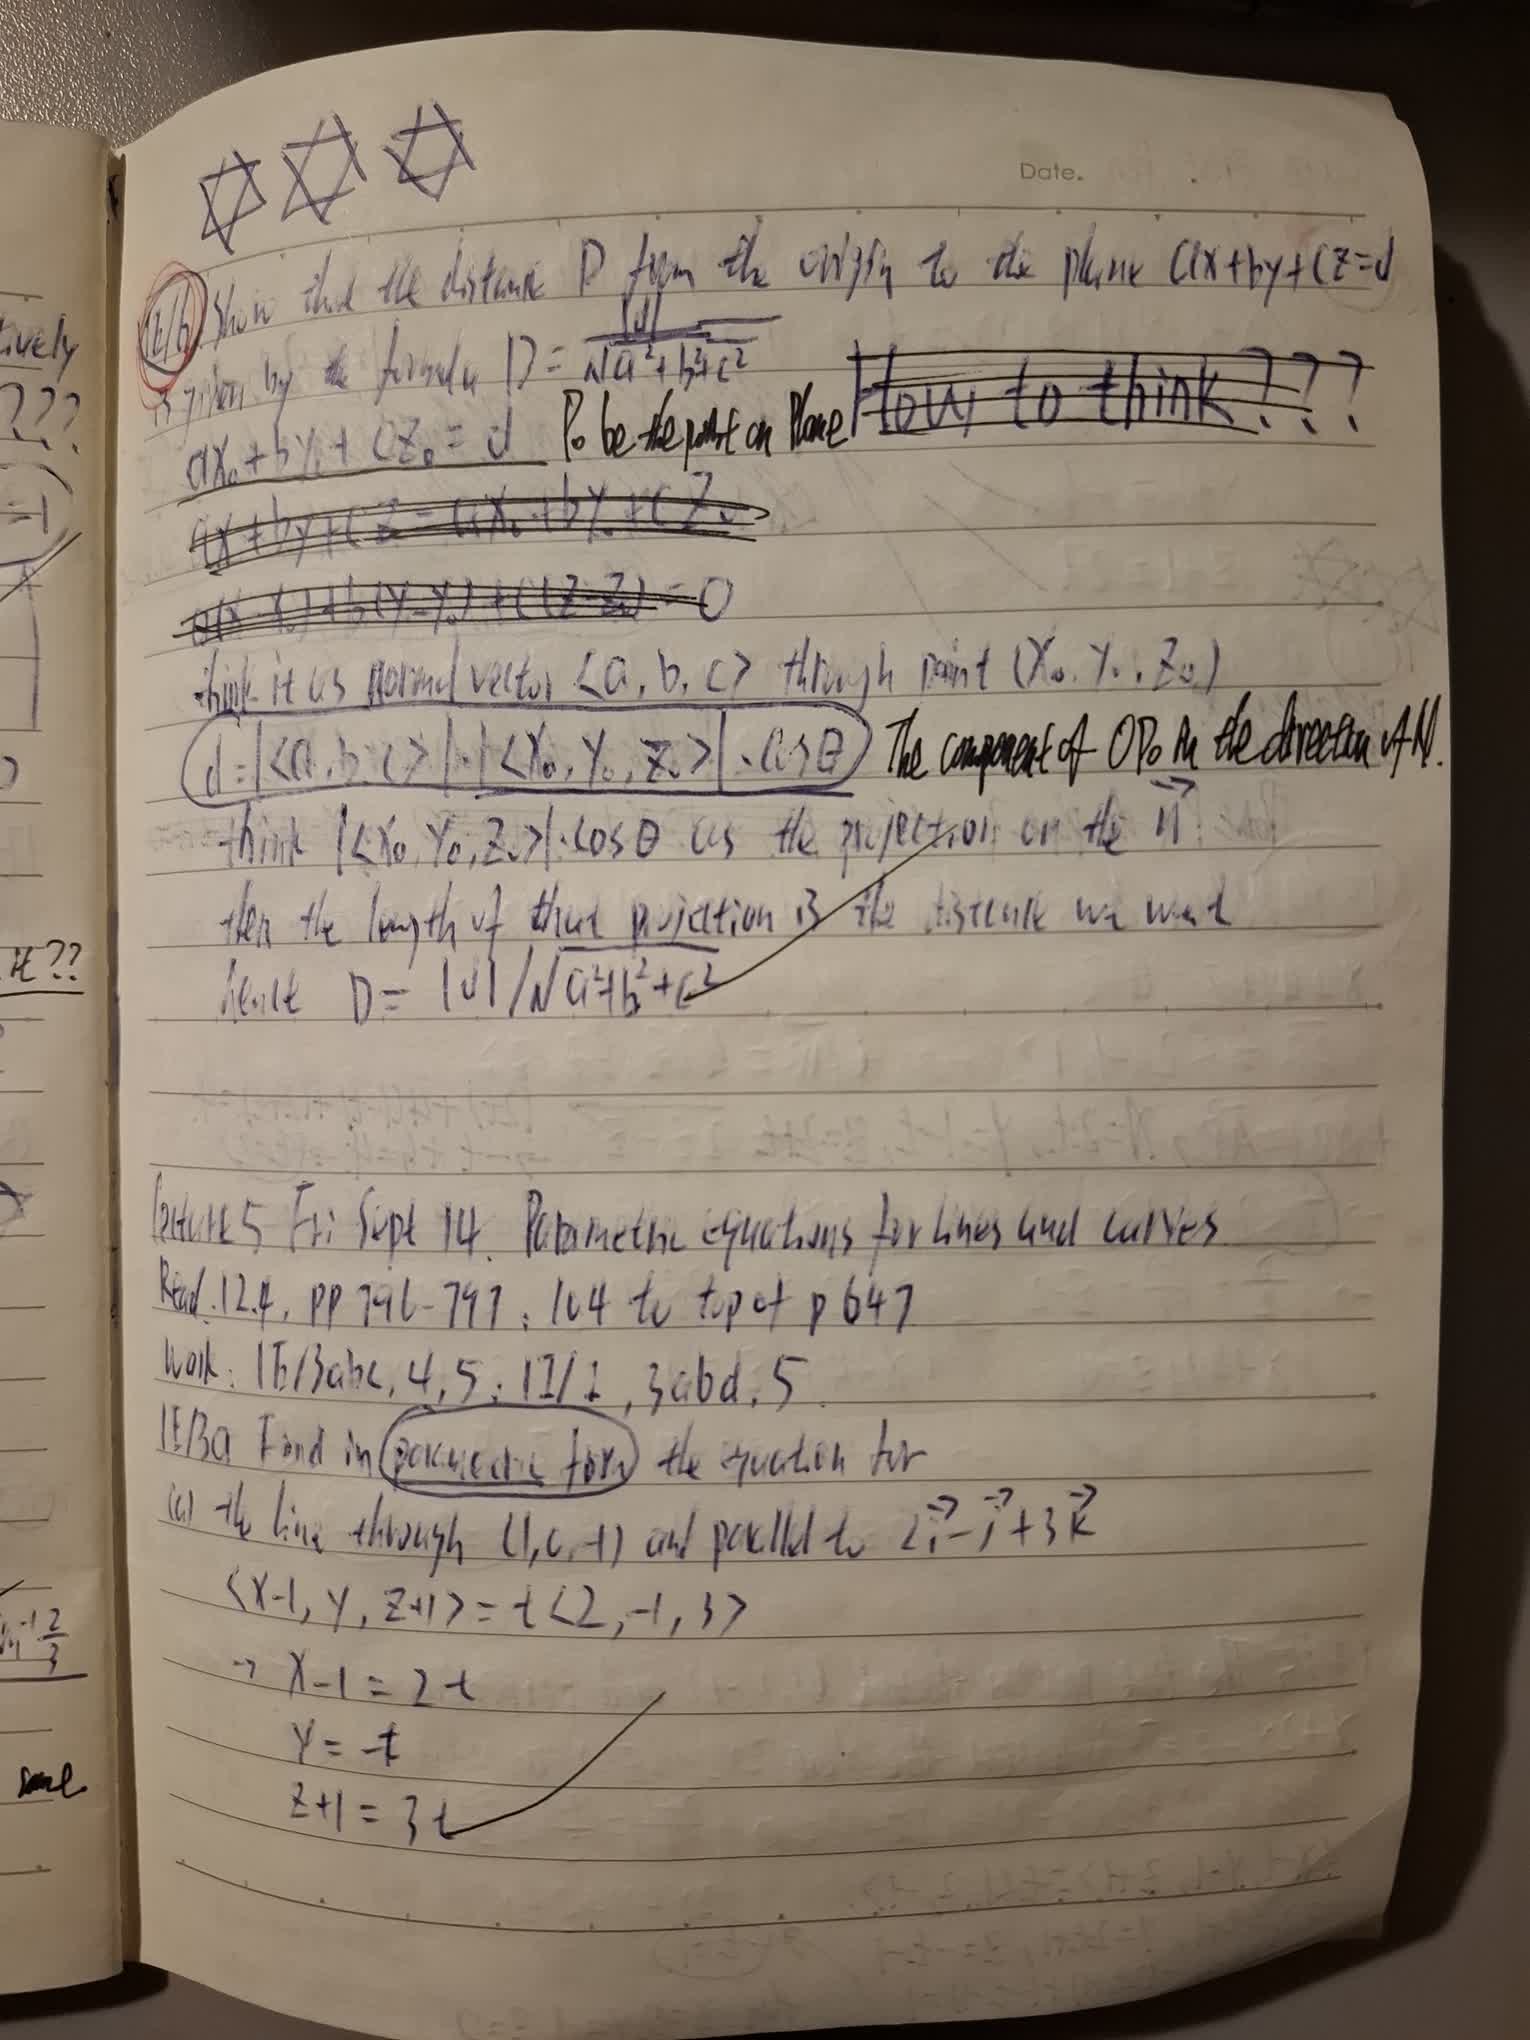 tively
???
it??
2
3
same
Date.
1E/6 Show that the distance D from the origin to the plane ax+by+cz=d
is given by the formula D = |d| / √a²+b²+c²
How to think???
ax₀+by₀+cz₀=d P₀ be the point on plane
ax+by+cz=ax₀+by₀+cz₀
a(x-x₀)+b(y-y₀)+c(z-z₀)=0
think it as normal vector <a,b,c> through point (x₀,y₀,z₀)
d=|<a,b,c>|·|<x₀,y₀,z₀>|·cosθ The component of OP₀ in the direction of N.
think |<x₀,y₀,z₀>|·cosθ as the projection on the n⃗
then the length of that projection is the distance we want
hence D= |d|/√a²+b²+c²
Lecture5 Fri Sept 14. Parametric equations for lines and curves
Read.12.4, pp 796-797, 10.4 to top of p 647
Work: 1E/3abc,4,5; 1I/1,3abd,5.
1E/3a Find in parametric form the equation for
(a) the line through (1,0,-1) and parallel to 2i⃗-j⃗+3k⃗
<x-1,y,z+1>=t<2,-1,3>
→ x-1=2t
y=-t
z+1=3t